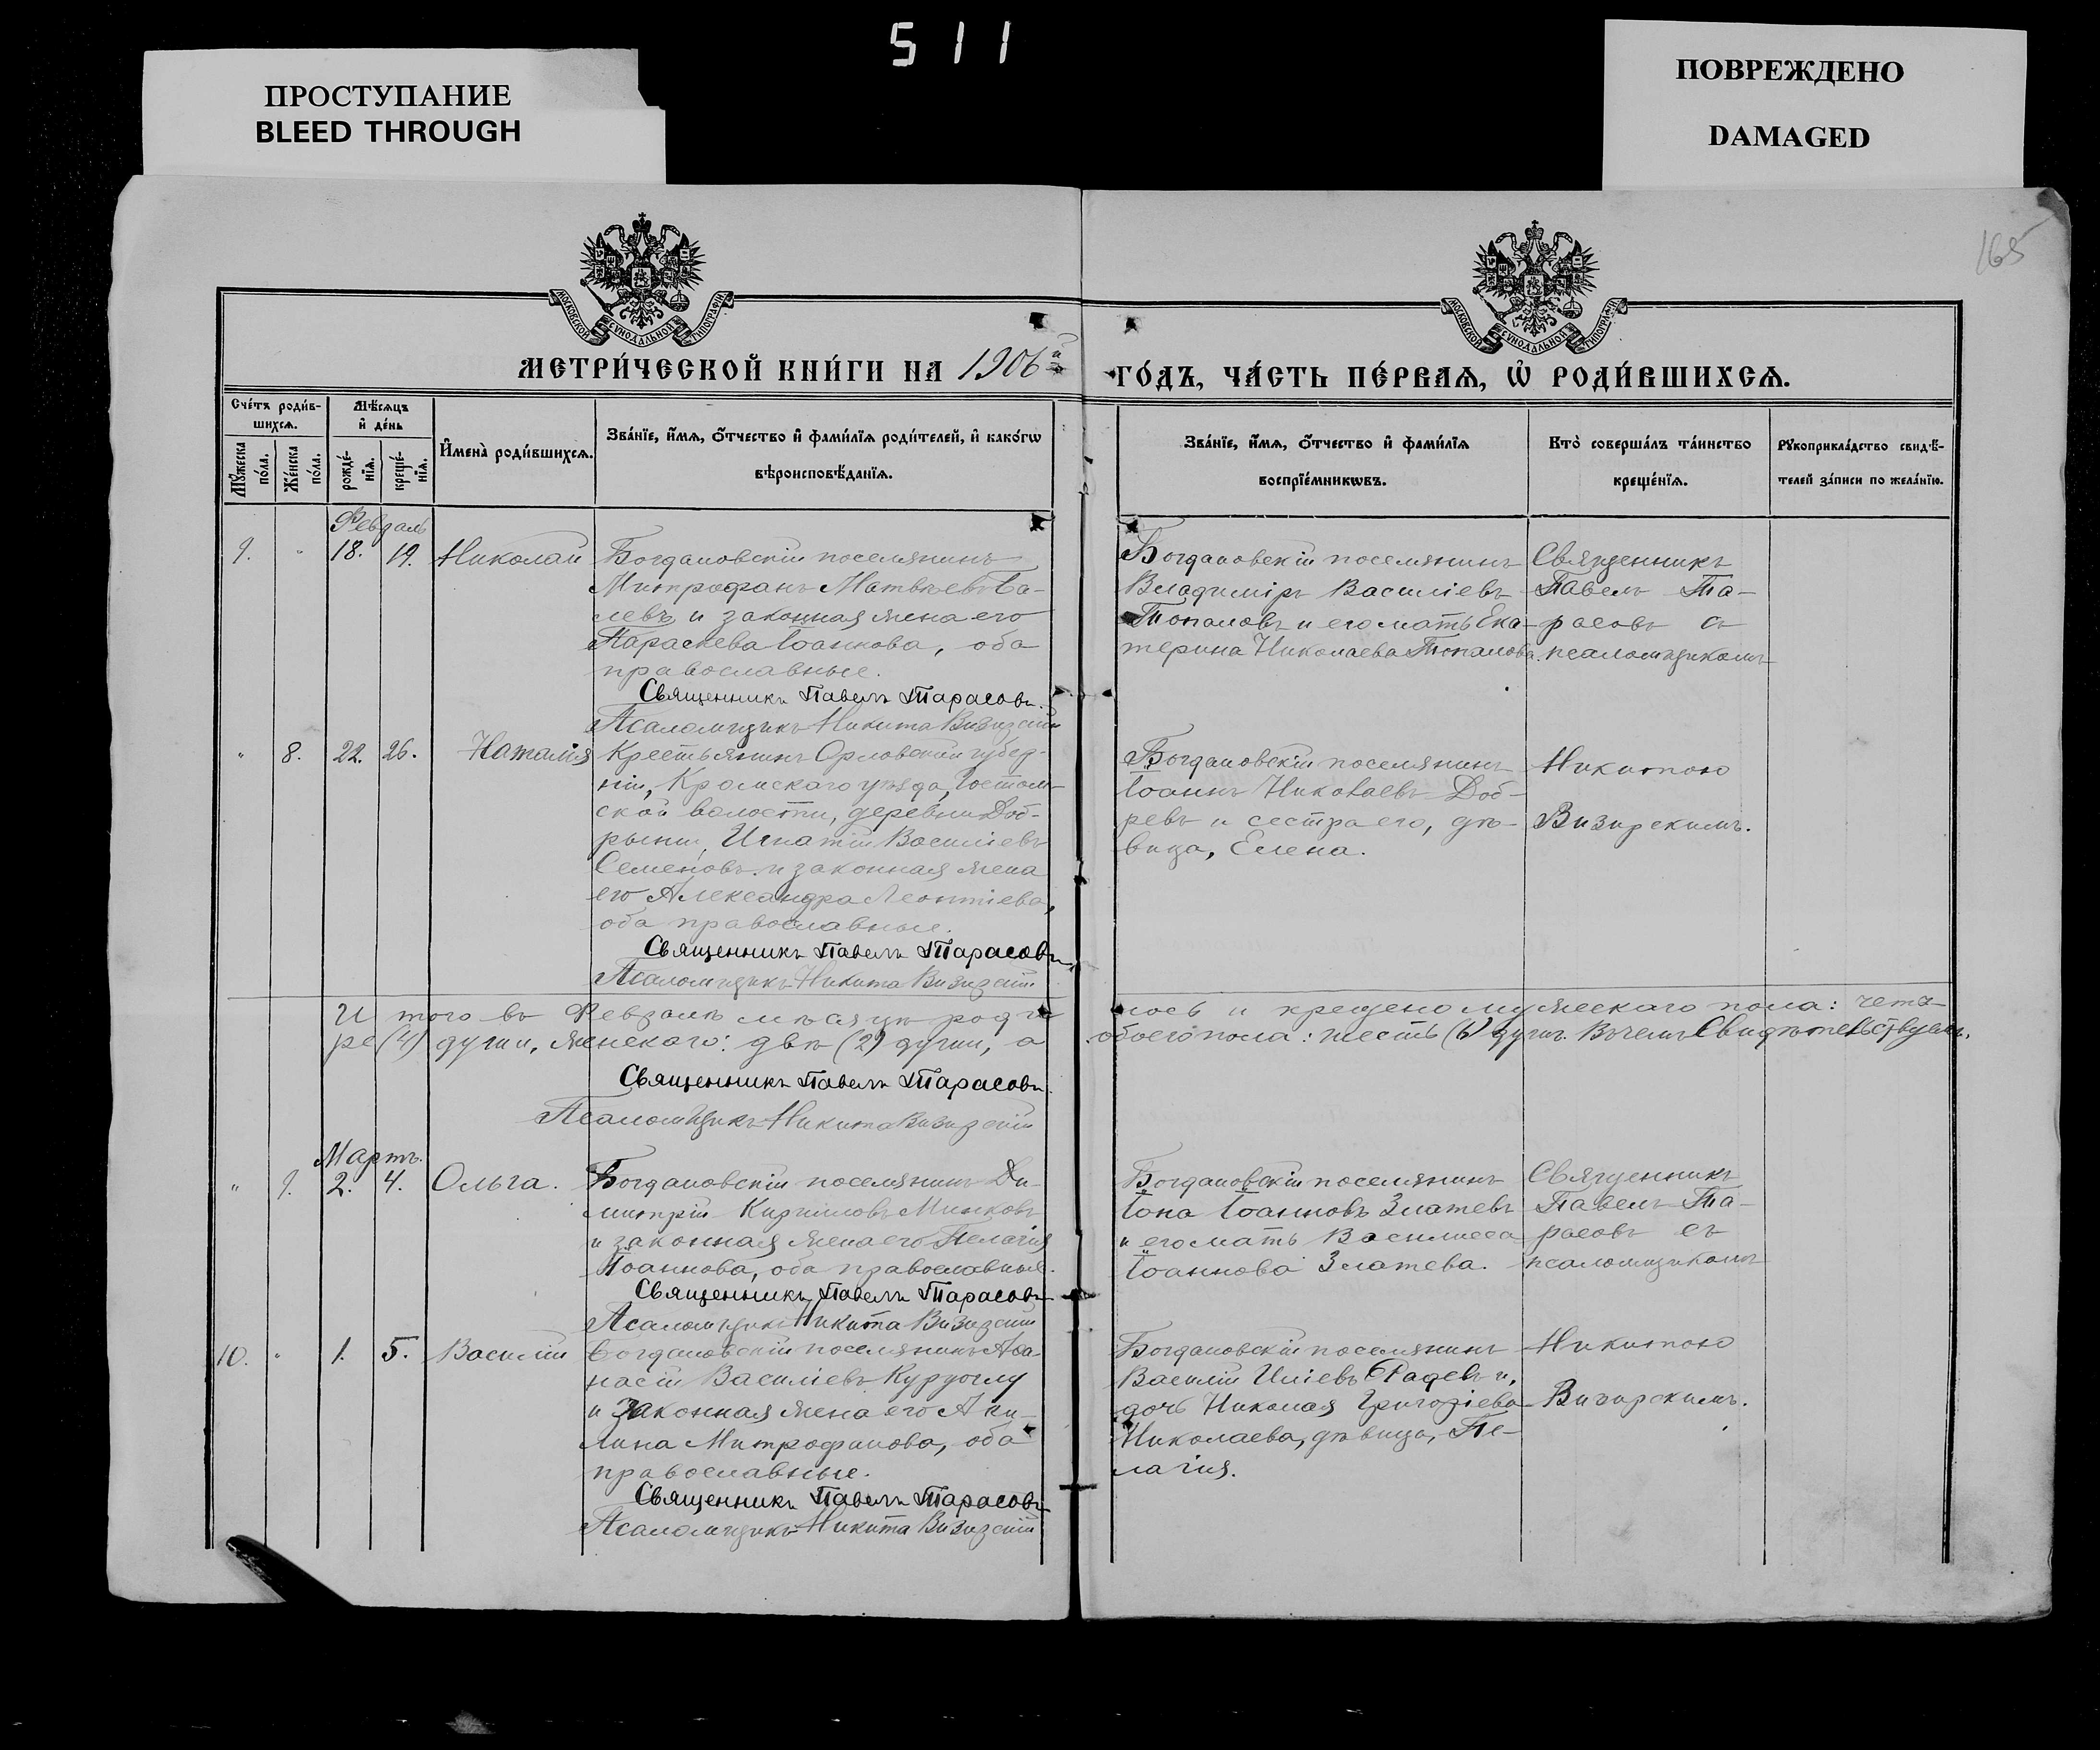 511
ПРОСТУПАНИЕ
BLEED THROUGH
ПОВРЕЖДЕНО
DAMAGED
165
МОСКОВСКОЙ СѴНОДАЛЬНОЙ ТИПОГРАФІИ
МОСКОВСКОЙ СѴНОДАЛЬНОЙ ТИПОГРАФІИ
МЕТРИ́ЧЕСКОЙ КНИ́ГИ НА 1906й ГО́ДЪ, ЧА́СТЬ ПЕ́РВАЯ, Ѡ҆ РОДИ́ВШИХСЯ.
Сче́тъ роди́в-
шихся.
Мꙋ́жеска
по́ла.
Же́нска
по́ла.
Мѣ́сяцъ
и҆ де́нь
рожде́-
нїя.
креще́-
нїя.
И҆мена̀ роди́вшихся.
Зва́нїе, и҆́мя, ѻ҆́тчество и҆ фами́лїя роди́телей, и҆ како́гѡ
вѣроисповѣ́данїя.
Зва́нїе, и҆́мя, ѻ҆́тчество и҆ фами́лїя
воспрїе́мникѡвъ.
Кто̀ соверша́лъ та́инство
креще́нїя.
Рꙋкоприкла́дство свидѣ́-
телей за́писи по жела́нїю.
Февраль
9. " 18. 19. Николай
Богдановскій поселянинъ
Митрофанъ Матвѣевъ Ба-
левъ и законная жена его
Параскева Іоаннова, оба
православные.
Священникъ Павелъ Тарасовъ.
Псаломщикъ Никита Визирскій
Богдановскій поселянинъ
Владиміръ Василіевъ
Топаловъ и его мать Ека-
терина Николаева Топалова.
Священникъ
Павелъ Та-
расовъ съ
псаломщикомъ
" 8. 22. 26. Наталія
Крестьянинъ Орловской губер-
ніи, Кромскаго уѣзда, Гостом-
ской волости, деревни Доб-
рыни, Игнатій Василіевъ
Семеновъ и законная жена
его Александра Леонтіева,
оба православные.
Священникъ Павелъ Тарасовъ
Псаломщикъ Никита Визирскій
Богдановскій поселянинъ
Іоаннъ Николаевъ Доб-
ревъ и сестра его, дѣ-
вица, Елена.
Никитою
Визирскимъ.
И того въ Февралѣ мѣсяцѣ роди- лось и крещено мужескаго пола: четы-
ре (4) души, женскаго: двѣ (2) души, а обоего пола: шесть (6) душъ. Въ чемъ Свидѣтельствуемъ.
Священникъ Павелъ Тарасовъ.
Псаломщикъ Никита Визирскій
Мартъ.
" 9. 2. 4. Ольга.
Богдановскій поселянинъ Ди-
митрій Кирилловъ Минковъ
и законная жена его Пелагія
Іоаннова, оба православные.
Священникъ Павелъ Тарасовъ
Псаломщикъ Никита Визирскій
Богдановскій поселянинъ
Іона Іоанновъ Златевъ
и его мать Василисса
Іоаннова Златева.
Священникъ
Павелъ Та-
расовъ съ
псаломщикомъ
10. " 1. 5. Василій
Богдановскій поселянинъ Аѳа-
насій Василіевъ Курдоглу
и законная жена его Аки-
лина Митрофанова, оба
православные.
Священникъ Павелъ Тарасовъ
Псаломщикъ Никита Визирскій
Богдановскій поселянинъ
Василій Иліевъ Радевъ и,
дочь Николая Григоріева
Николаева, дѣвица, Пе-
лагія.
Никитою
Визирскимъ.